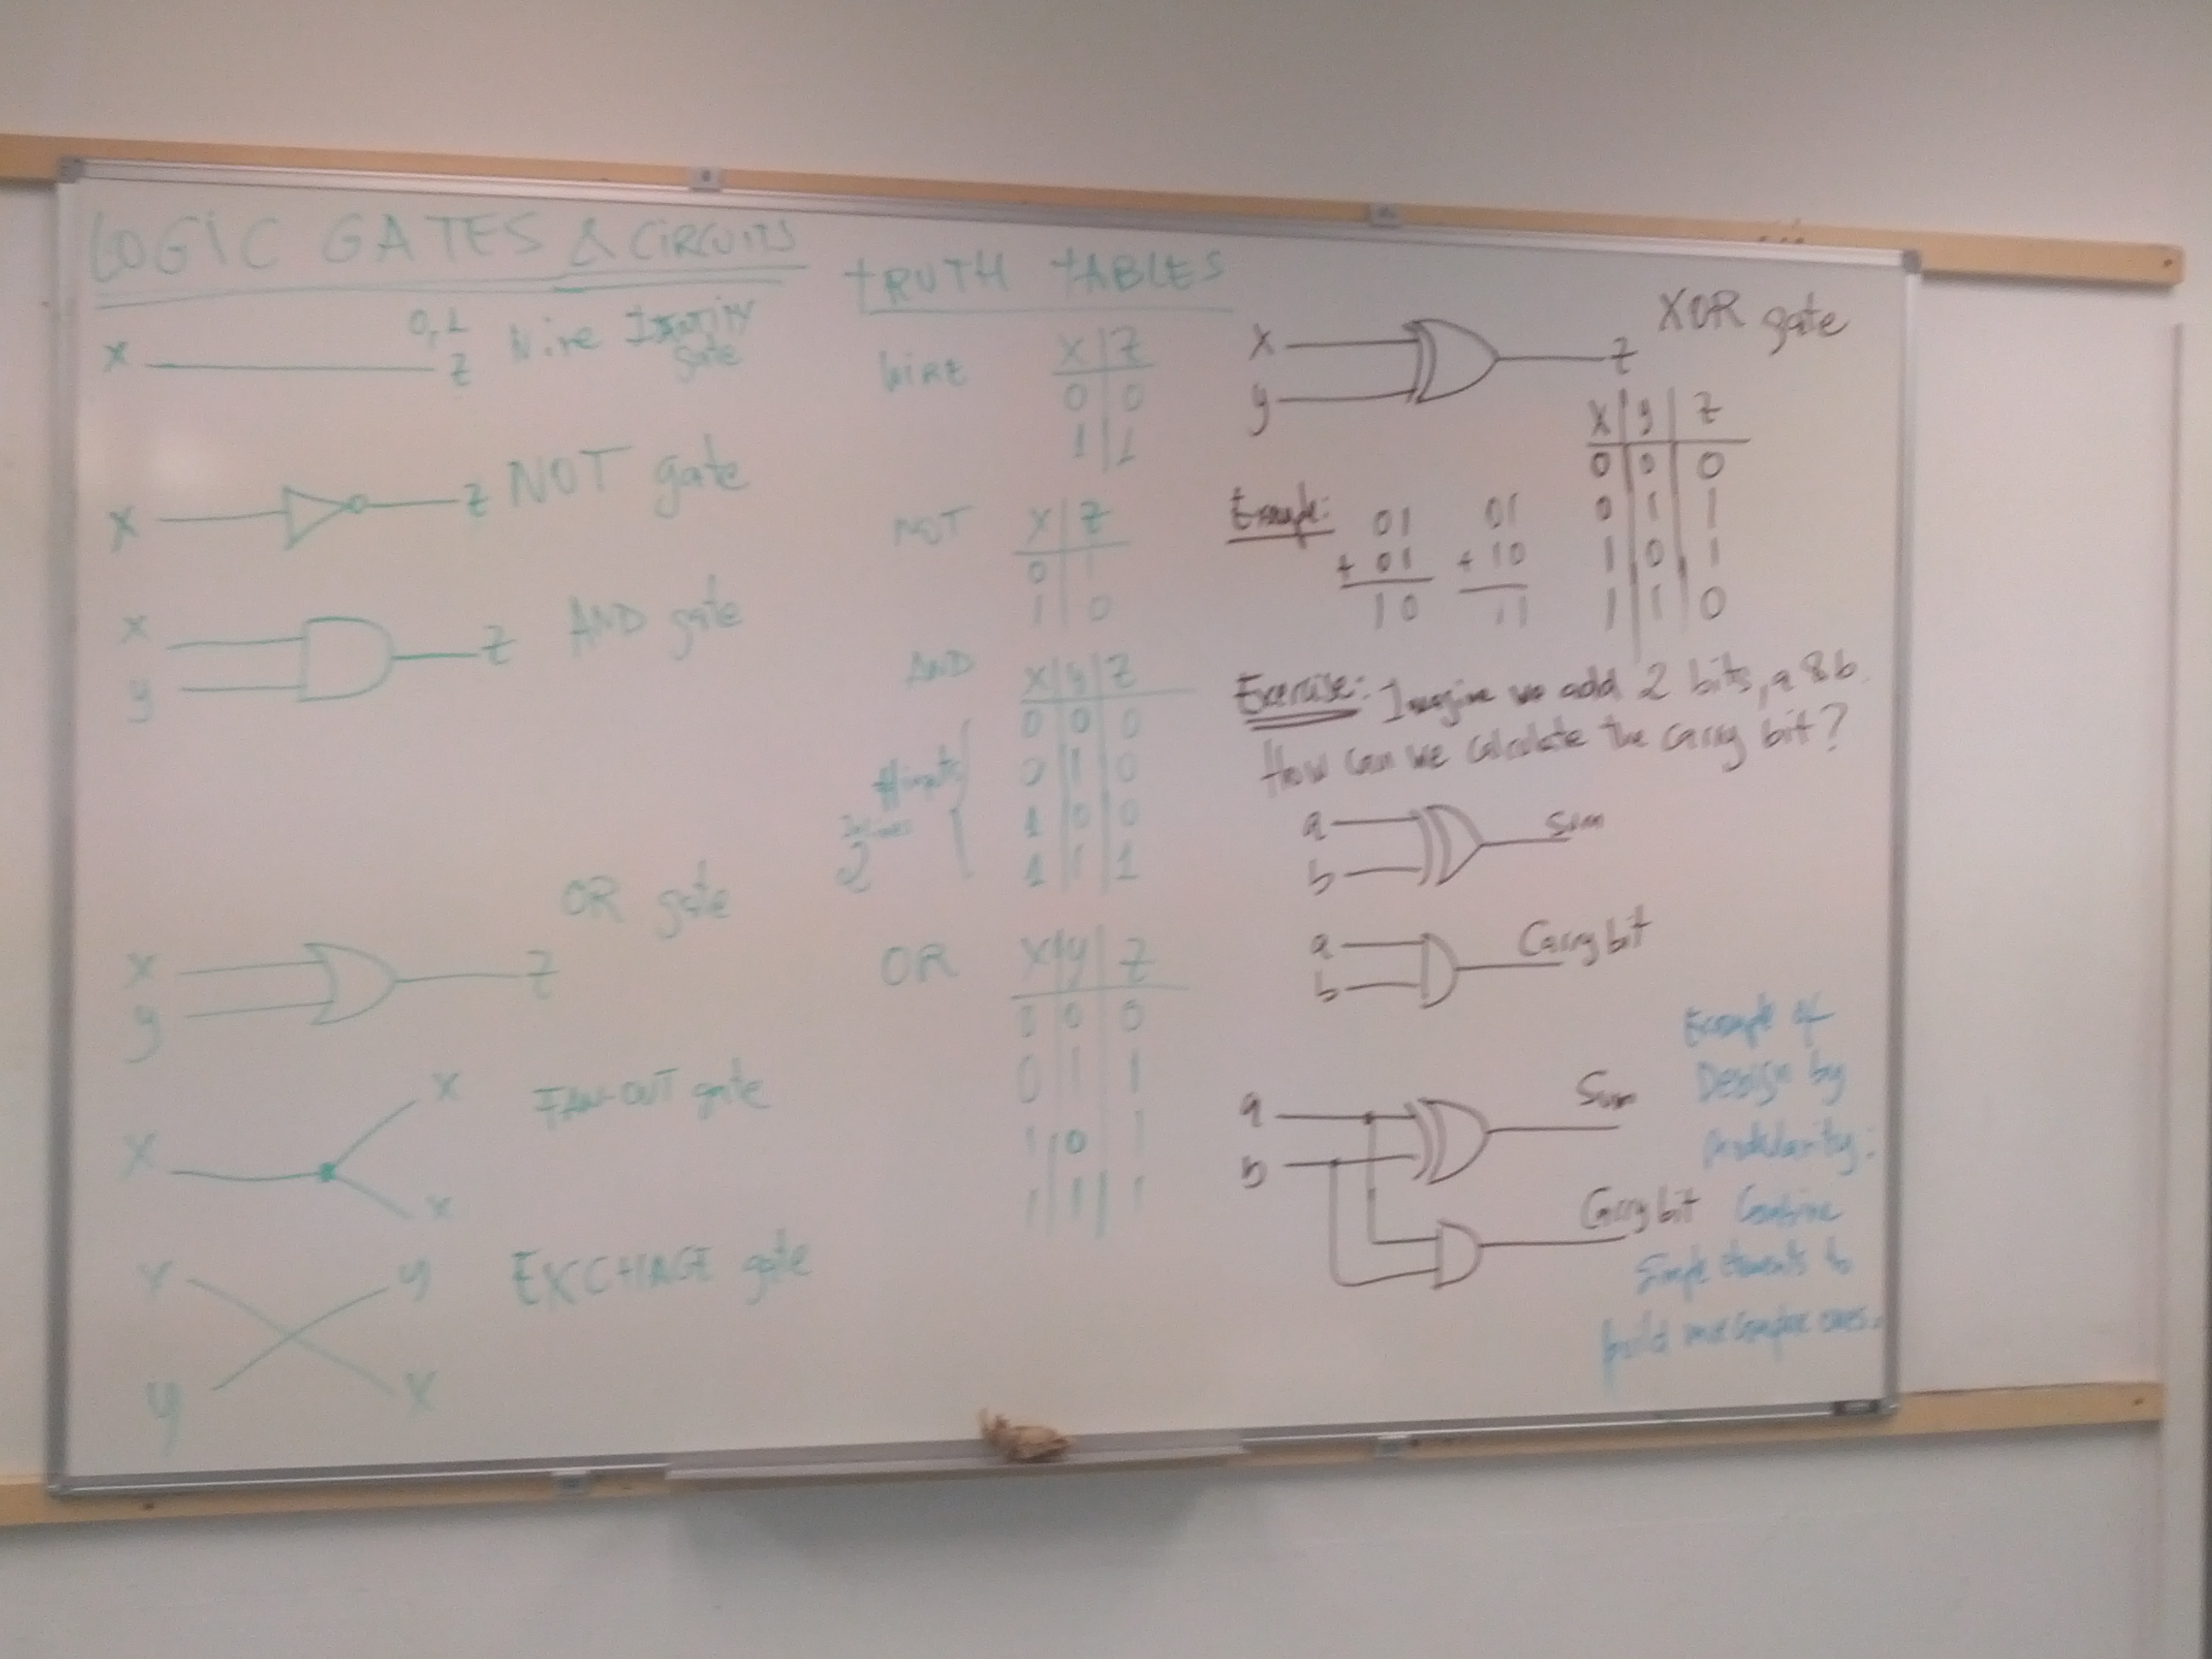 LOGIC GATES & CIRCUITS
x 0,1 z Wire Identity gate
x z NOT gate
x y z AND gate
OR gate
x y z
x x x FAN-OUT gate
x y y x EXCHAGE gate
TRUTH TABLES
WIRE x z
0 0
1 1
NOT x z
0 1
1 0
AND x y z
0 0 0
0 1 0
1 0 0
1 1 1
#inputs
2
OR x y z
0 0 0
0 1 1
1 0 1
1 1 1
XOR gate
x y z
x y z
0 0 0
0 1 1
1 0 1
1 1 0
Example:
01
+ 01
10
01
+ 10
11
Exercise: Imagine we add 2 bits, a & b.
How can we calculate the carry bit?
a b Sum
a b Carry bit
a b Sum
Carry bit
Example of
Design by
Modularity:
Combine
Simple elements to
build more complex ones.